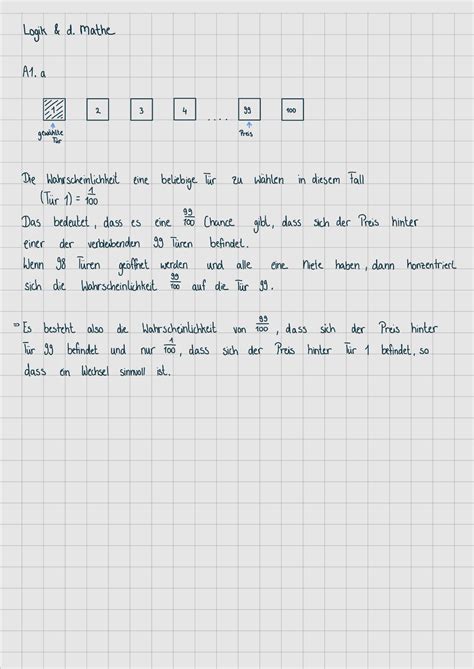 Logik & d. Mathe
A1. a
1 2 3 4 .... 99 100
gewählte Preis
Tür
Die Wahrscheinlichkeit eine beliebige Tür zu wählen in diesem Fall
(Tür 1) = 1/100
Das bedeutet, dass es eine 99/100 Chance gibt, dass sich der Preis hinter
einer der verbleibenden 99 Türen befindet.
Wenn 98 Türen geöffnet werden und alle eine Niete haben, dann konzentriert
sich die Wahrscheinlichkeit 99/100 auf die Tür 99.
⇒ Es besteht also die Wahrscheinlichkeit von 99/100, dass sich der Preis hinter
Tür 99 befindet und nur 1/100, dass sich der Preis hinter Tür 1 befindet, so
dass ein Wechsel sinnvoll ist.